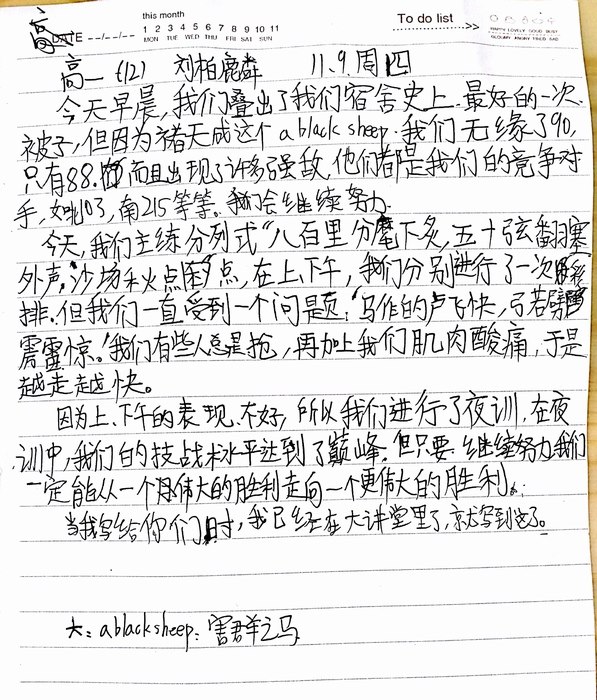 this month
DATE --/--/--
1 2 3 4 5 6 7 8 9 10 11
MON TUE WED THU FRI SAT SUN
To do list ......>>
高一 (12) 刘柏鹿粦 11.9.周四
今天早晨,我们叠出了我们宿舍史上.最好的一次
被子,但因为褚天成这个a black sheep.我们无缘了90,
只有88.而且出现了许多强敌.他们都是我们的竞争对
手,如103,南215等等。我们会继续努力.
今天,我们主练分列式"八百里分麾下炙,五十弦翻塞
外声,沙场秋点兵"点,在上、下午,我们分别进行了一次彩
排.但我们一直受到一个问题:"马作的卢飞快,弓若霹
雳弦惊。"我们有些人总是抢,再加上我们肌肉酸痛,于是
越走越快。
因为上、下午的表现.不好,所以我们进行了夜训.在夜
训中,我们的技战术水平达到了巅峰.但只要.继续努力我们
一定能从一个伟大的胜利走向一个更伟大的胜利。
当我写给你们时,我已经在大讲堂里了,就写到这了。
大:a black sheep:害群之马